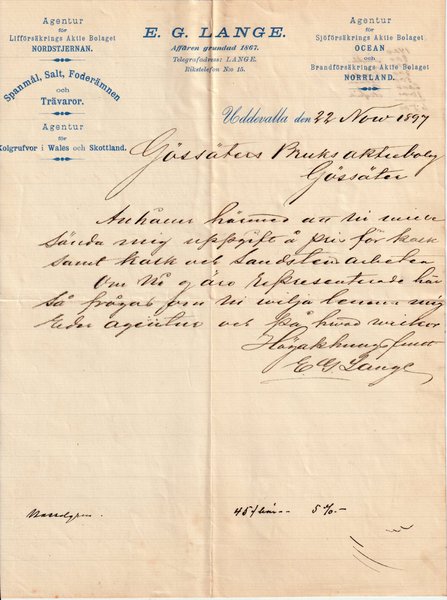 Agentur
för
Lifförsäkrings Aktie Bolaget
NORDSTJERNAN.
Spanmål, Salt, Foderämnen
och
Trävaror.
Agentur
för
Kolgrufvor i Wales och Skottland.
E. G. LANGE.
Affären grundad 1867.
Telegrafadress: LANGE.
Rikstelefon N:o 15.
Agentur
för
Sjöförsäkrings Aktie Bolaget
OCEAN
och
Brandförsäkrings Aktie Bolaget
NORRLAND.
Uddevalla den 22 Nov 1897
Gössäters Bruksaktiebolag
Gössäter
Anhåller härmed att Ni
sända mig uppgift å pris för kalk
samt kalk och Sandsten arbeten
Om Ni ej äro representerade här
så frågas om Ni vilja lemna mig
Eder agentur och på hvad
Högaktningsfullt
E G Lange
45 5%